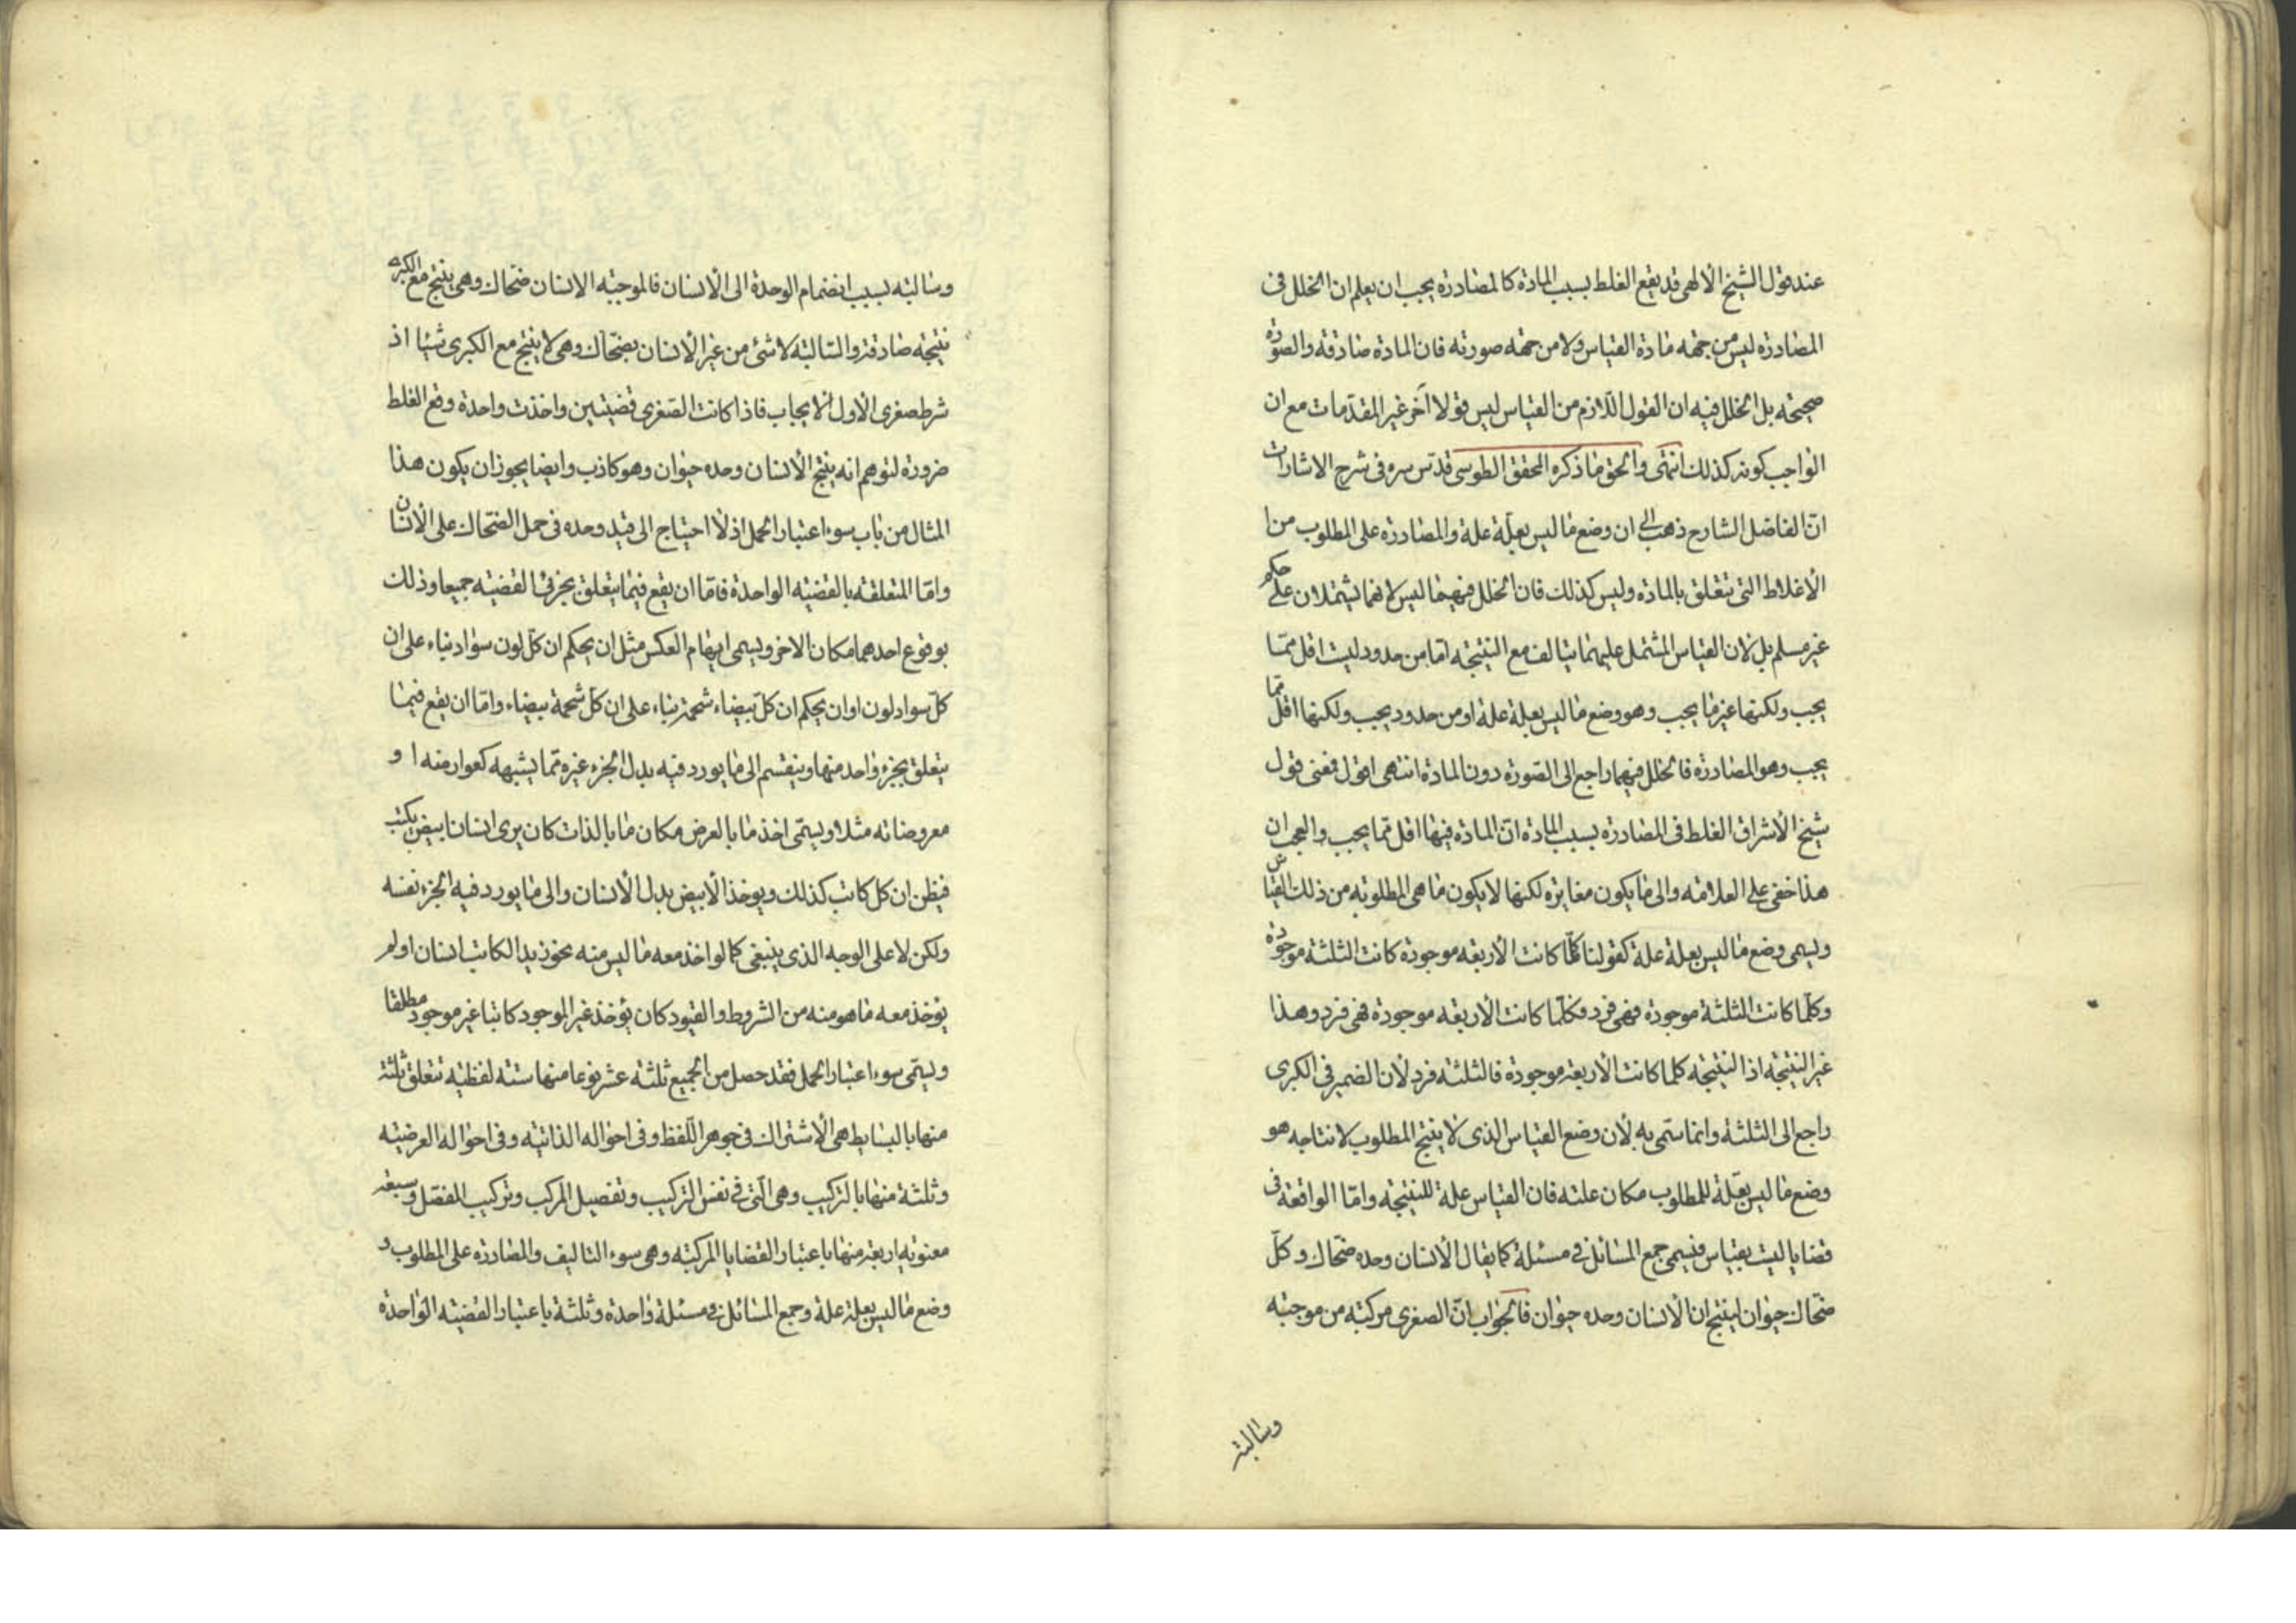 عند قول الشيخ الالهى قد يقع الغلط بسبب المادة كالمصادرة يجب ان يعلم ان الخلل فى
المصادرة ليس من جهة مادة القياس ولا من جهة صورته فان المادة صادقة والصورة
صحيحة بل الخلل فيه ان القول اللازم من القياس ليس قولا آخر غير المقدمات مع ان
الواجب كونه كذلك انتهى والحق ما ذكره المحقق الطوسى قدس سره فى شرح الاشارات
ان الفاضل الشارح ذهب الى ان وضع ما ليس بعلة علة والمصادرة على المطلوب من
الأغلاط التى تتعلق بالمادة وليس كذلك فان الخلل فيهما ليس لانهما يشتملان على حكم
غير مسلم بل لان القياس المشتمل عليهما يتالف مع النتيجة اما من حدود ليست اقل مما
يجب ولكنها غير ما يجب وهو وضع ما ليس بعلة علة او من حدود يجب ولكنها اقل مما
يجب وهو المصادرة فالخلل فيهما راجع الى الصورة دون المادة انتهى اقول فمعنى قول
شيخ الأشراق الغلط فى المصادرة بسبب المادة ان المادة فيها اقل مما يجب والعجب ان
هذا خفى على العلامة والى ما يكون مغايرة لكنها لا يكون ما هى المطلوبة من ذلك القياس
ويسمى وضع ما ليس بعلة علة كقولنا كلما كانت الأربعة موجودة كانت الثلثة موجودة
وكلما كانت الثلثة موجودة فهى فرد فكلما كانت الأربعة موجودة فهى فرد وهذا
غير النتيجة اذ النتيجة كلما كانت الأربعة موجودة فالثلثة فرد لأن الضمير فى الكبرى
راجع الى الثلثة وانما سمى به لأن وضع القياس الذى لا ينتج المطلوب لانتاجه هو
وضع ما ليس بعلة للمطلوب مكان علته فان القياس علة للنتيجة واما الواقعة فى
قضايا ليست بقياس فيسمى جمع المسائل فى مسئلة كما يقال الأنسان وحده ضحاك وكل
ضحاك حيوان لينتج ان الأنسان وحده حيوان فالجواب ان الصغرى مركبة من موجبة
وسالبة
وسالبة بسبب انضمام الوحدة الى الأنسان فالموجبة الانسان ضحاك وهى ينتج مع الكبرى
نتيجة صادقة والسالبة لا شئ من غير الأنسان بضحاك وهى لا ينتج مع الكبرى شيئا اذ
شرط صغرى الأول الايجاب فاذا كانت الصغرى قضيتين واخذت واحدة وقع الغلط
ضرورة لتوهم انه ينتج الأنسان وحده حيوان وهو كاذب وايضا يجوز ان يكون هذا
المثال من باب سوء اعتبار الحمل اذ لا احتياج الى قيد وحده فى حمل الضحاك على الأنسان
واما المتعلقة بالقضية الواحدة فاما ان يقع فيما يتعلق بجزئى القضية جميعا وذلك
بوقوع احدهما مكان الاخر ويسمى ايهام العكس مثل ان يحكم ان كل لون سواد بناء على ان
كل سواد لون او ان يحكم ان كل بيضاء شحمة بناء على ان كل شحمة بيضاء واما ان يقع فيما
يتعلق بجزء واحد منها وينقسم الى ما يورد فيه بدل الجزء غيره مما يشبهه كعوارضه ا و
معروضاته مثلا ويسمى اخذ ما بالعرض مكان ما بالذات كان يرى انسانا ابيض يكتب
فيظن ان كل كاتب كذلك ويوخذ الأبيض بدل الأنسان والى ما يورد فيه الجزء نفسه
ولكن لا على الوجه الذى ينبغى كما لو اخذ معه ما ليس منه نحو زيد الكاتب انسان او لم
يؤخذ معه ما هو منه من الشروط والقيود كان يؤخذ غير الموجود كاتبا غير موجود مطلقا
ويسمى سوء اعتبار الحمل فقد حصل من الجميع ثلثة عشر نوعا منها ستة لفظية تتعلق ثلثة
منها بالبسايط هى الأشتراك فى جوهر اللفظ وفى احواله الذاتية وفى احواله العرضية
وثلثة منها بالتركيب وهى التى فى نفس التركيب وتفصيل المركب وتركيب المفصل وسبعة
معنوية اربعة منها باعتبار القضايا المركبة وهى سوء التاليف والمصادرة على المطلوب و
وضع ما ليس بعلة علة وجمع المسائل فى مسئلة واحدة وثلثة باعتبار القضية الواحدة